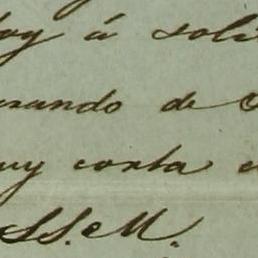 oy á soli
rando de
uy corta e
S.S. M.